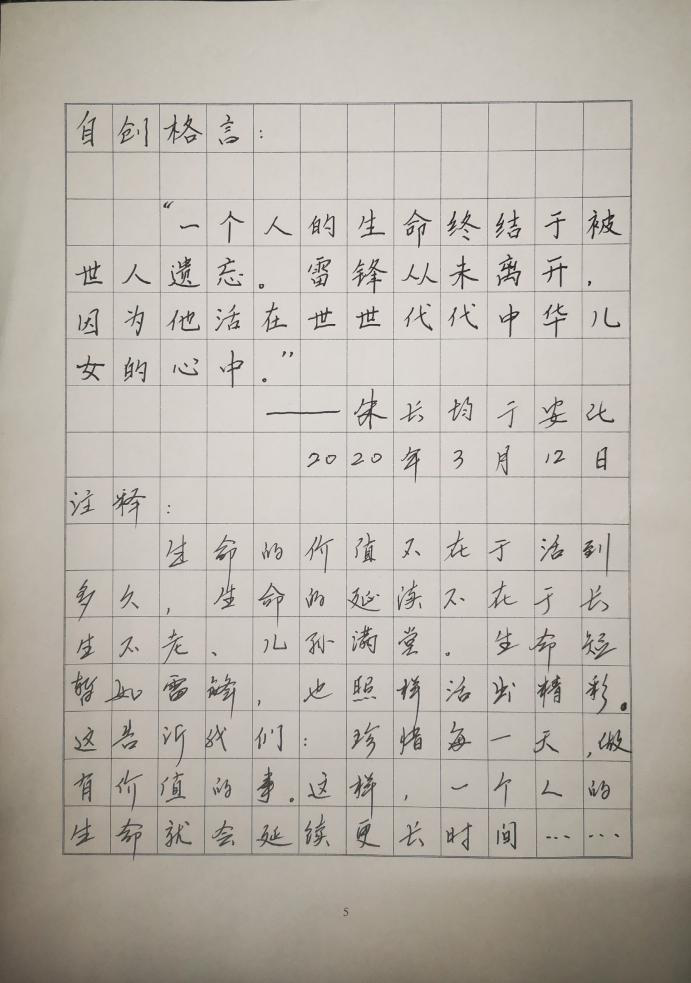 自创格言：
“一个人的生命终结于被
世人遗忘。雷锋从未离开，
因为他活在世世代代中华儿
女的心中。”
——朱长均于安化
2020年3月12日
注释：
生命的价值不在于活到
多久，生命的延续不在于长
生不老、儿孙满堂。生命短
暂如雷锋，也照样活出精彩。
这告诉我们：珍惜每一天，做
有价值的事。这样，一个人的
生命就会延续更长时间……
5